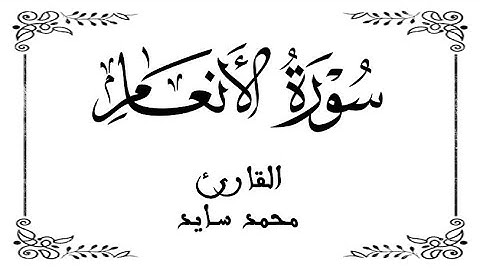 سُورَةُ الأَنعَامِ
القارئ
محمد سايد